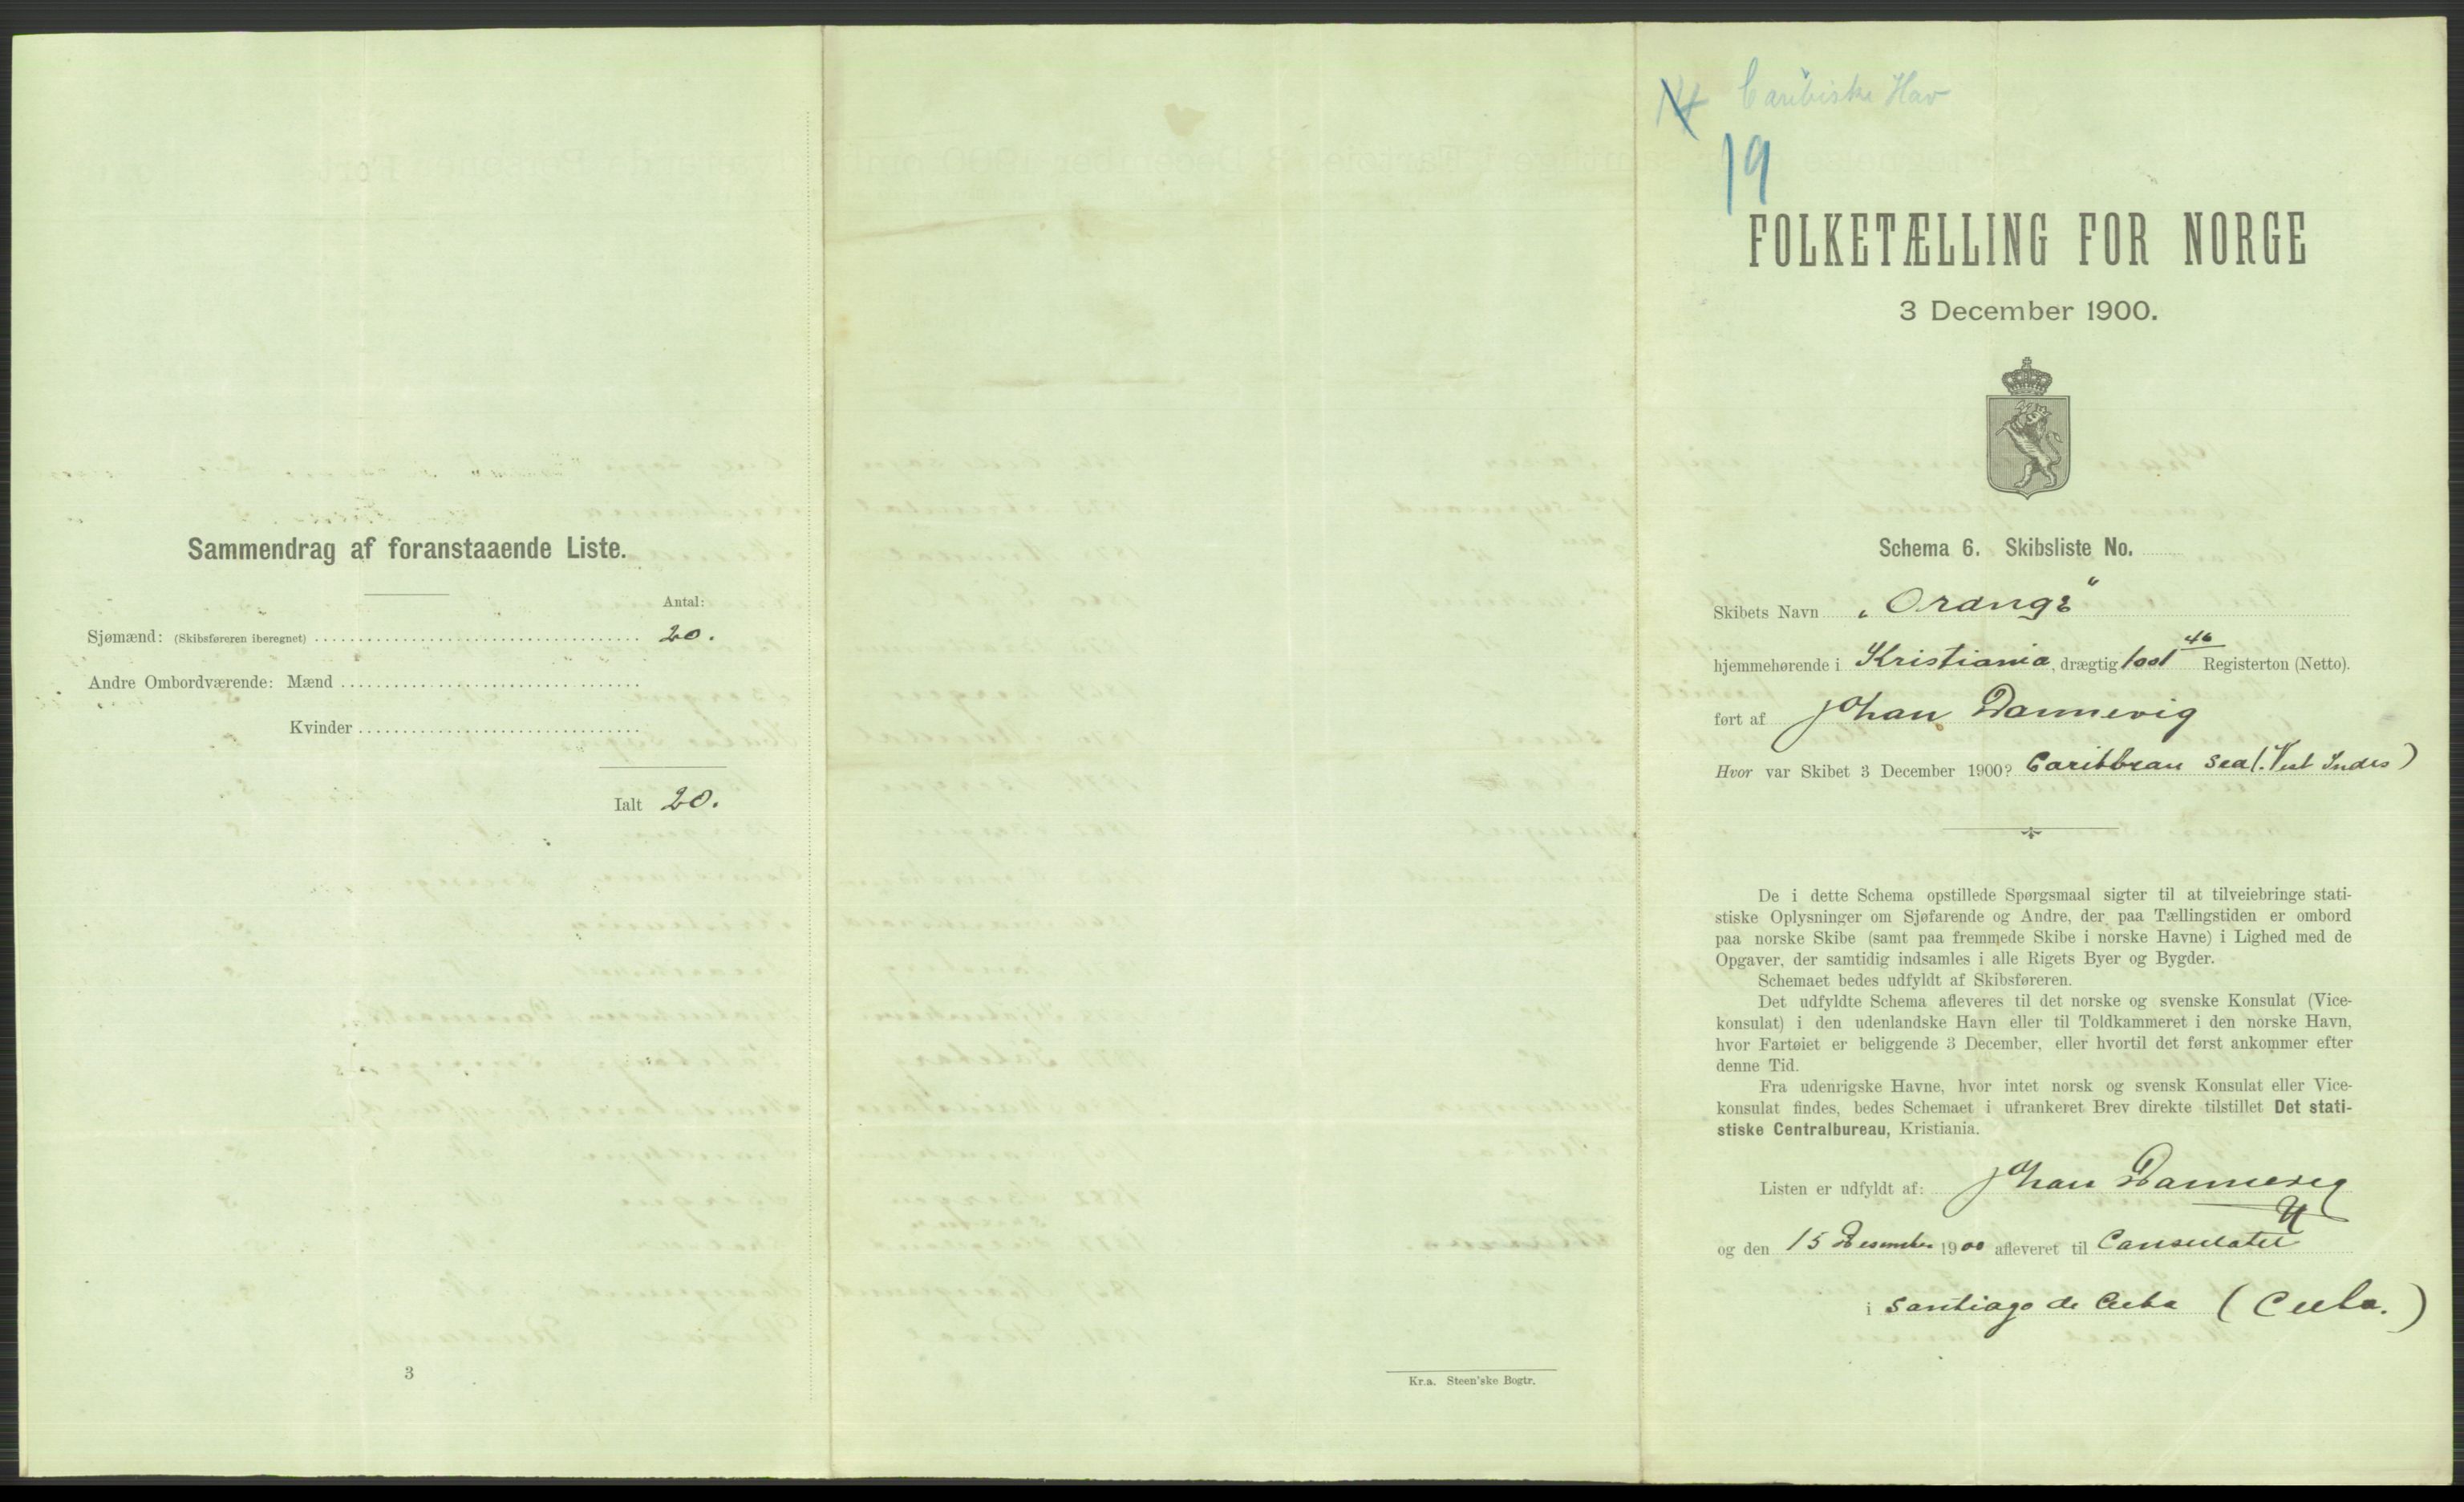 Sammendrag af foranstaaende Liste.
Antal:
Sjømænd: (Skibsføreren iberegnet) 20.
Andre Ombordværende: Mænd
Kvinder
Ialt 20.
3
Kr.a. Steen'ske Bogtr.
Caribiske Hav
19
FOLKETÆLLING FOR NORGE
3 December 1900.
Schema 6. Skibsliste No.
Skibets Navn „Orange“
hjemmehørende i Kristiania, drægtig 1001 46 Registerton (Netto).
ført af Johan Dannevig
Hvor var Skibet 3 December 1900? Caribbean Sea (Vest Indes)
De i dette Schema opstillede Spørgsmaal sigter til at tilveiebringe stati-
stiske Oplysninger om Sjøfarende og Andre, der paa Tællingstiden er ombord
paa norske Skibe (samt paa fremmede Skibe i norske Havne) i Lighed med de
Opgaver, der samtidig indsamles i alle Rigets Byer og Bygder.
Schemaet bedes udfyldt af Skibsføreren.
Det udfyldte Schema afleveres til det norske og svenske Konsulat (Vice-
konsulat) i den udenlandske Havn eller til Toldkammeret i den norske Havn,
hvor Fartøiet er beliggende 3 December, eller hvortil det først ankommer efter
denne Tid.
Fra udenrigske Havne, hvor intet norsk og svensk Konsulat eller Vice-
konsulat findes, bedes Schemaet i ufrankeret Brev direkte tilstillet Det stati-
stiske Centralbureau, Kristiania.
Listen er udfyldt af: Johan Dannevig
og den 15 Desember 1900 afleveret til Consulatet
i Santiago de Cuba (Cuba.)